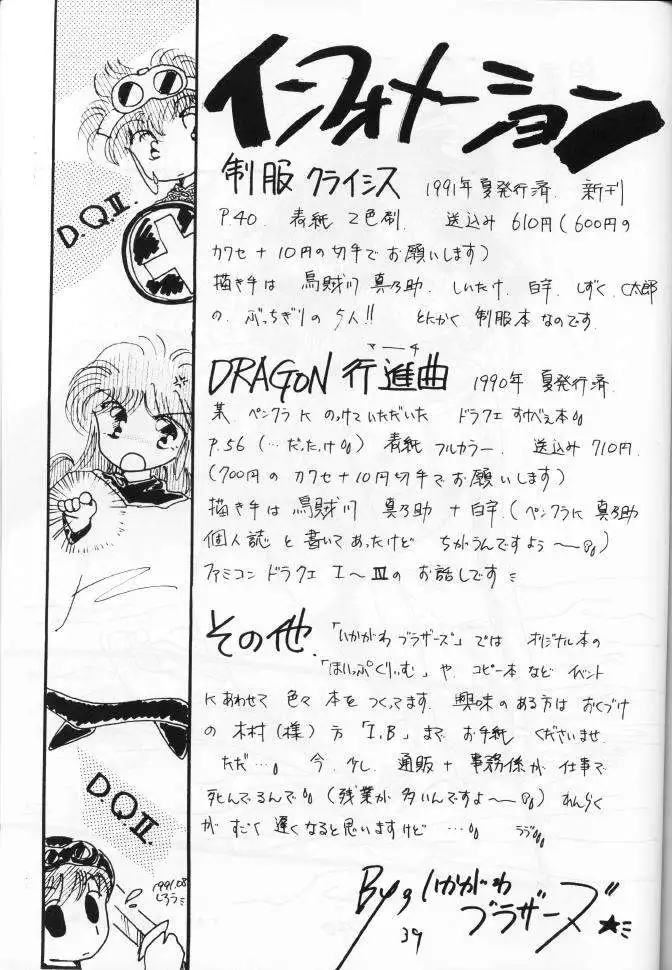 インフォメーション
制服クライシス 1991年夏発行済. 新刊
P.40. 表紙 2色刷. 送込み 610円(600円の
カワセ+10円の切手でお願いします)
描き手は 烏賊川 真乃助. しいたけ. 白宇. しずく. C太郎
の. ぶっちぎりの5人!! とにかく 制服本なのです.
マーチ
DRAGON 行進曲 1990年 夏発行済.
某. ペンクラに のっけていただいた ドラクエ すけべぇ本
P.56 (…だったけ) 表紙 フルカラー. 送込み 710円.
(700円の カワセ+10円切手でお願いします)
描き手は 烏賊川 真乃助 + 白宇. (ペンクラに 真乃助
個人誌 と 書いてあったけど ちがうんですよぅ〜)
ファミコン ドラクエ Ⅰ〜Ⅲの お話しです
その他. 「いかがわブラザーズ」では オリジナル本の
「ほいっぷくりぃむ」や. コピー本など イベント
にあわせて 色々 本を つくってます. 興味のある方は おくづけ
の 木村(様)方 「I.B」まで お手紙 くださいませ.
ただ… 今. 少し. 通販+事務係が 仕事で
死んでるんで (残業が 多いんですよ〜) れんらく
が すごく 遅くなると思いますけど …
By いかがわ
ブラザーズ
39
D.Q.Ⅱ.
D.Q.Ⅱ.
1991.08
しろう